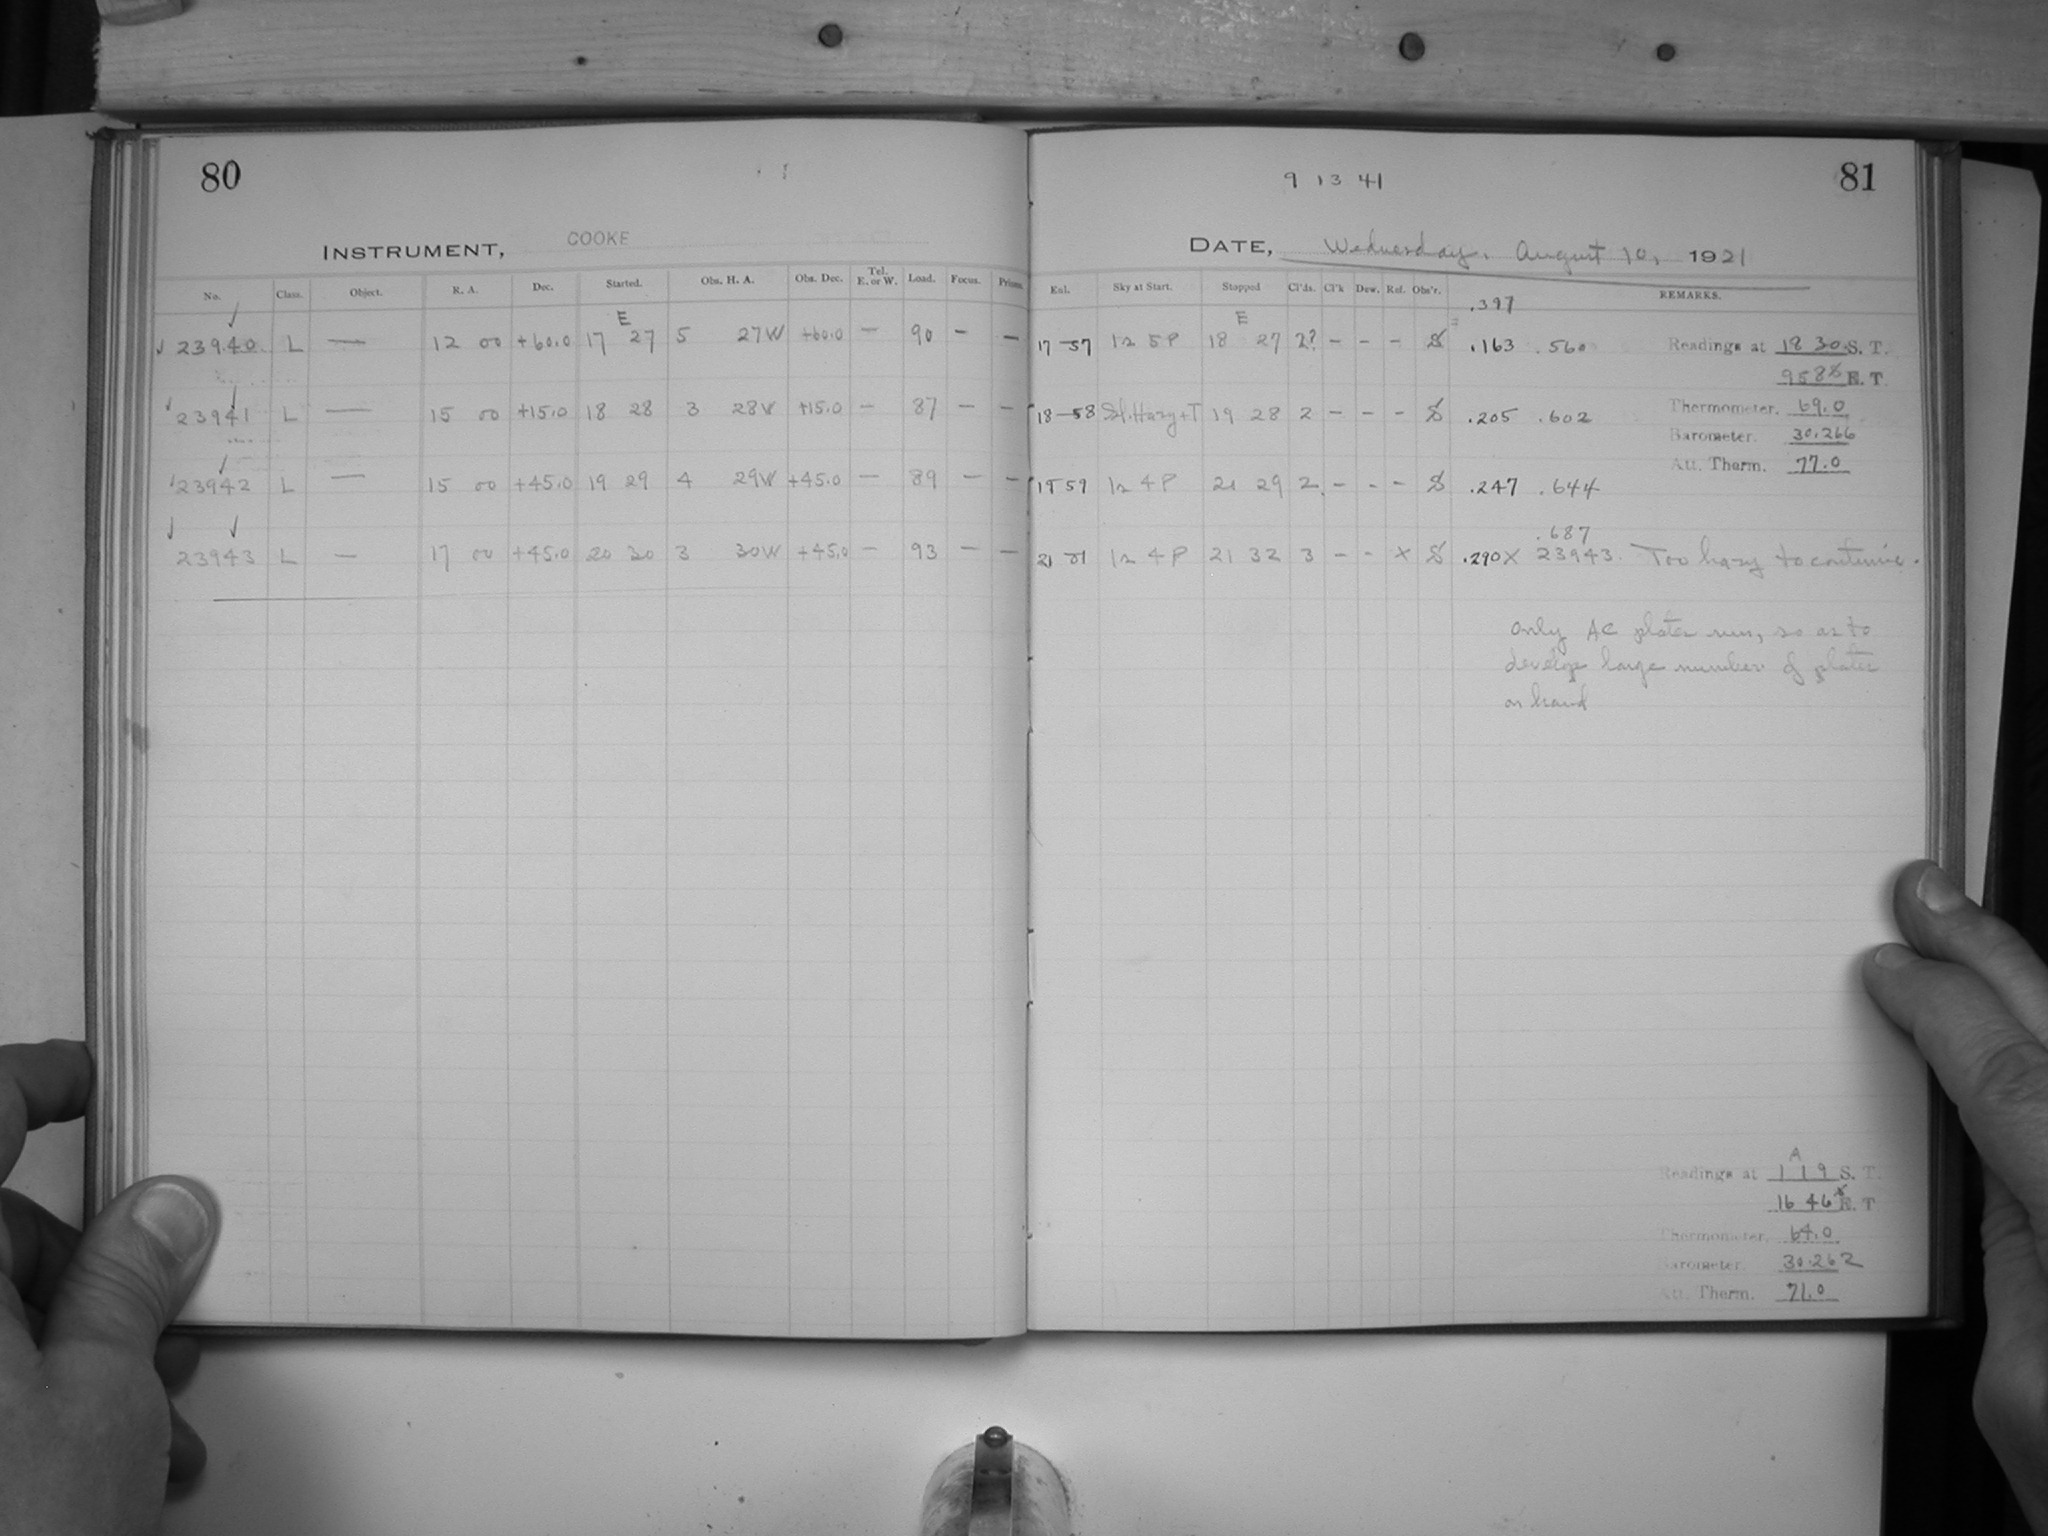 80
INSTRUMENT, COOKE
No. Class. Object. R. A. Dec. Started. Obs. H. A. Obs. Dec. Tel. E. or W. Load. Focus. Prisms
E
23940 L — 12 00 +60.0 17 27 5 27W +60.0 — 90 — —
23941 L — 15 00 +15.0 18 28 3 28W +15.0 — 87 — —
23942 L — 15 00 +45.0 19 29 4 29W +45.0 — 89 — —
23943 L — 17 00 +45.0 20 30 3 30W +45.0 — 93 — —
9 13 41
81
DATE, Wednesday, August 10, 1921
Sky at Start. Stopped Cl'ds. Cl'k Dew. Ref. Obs'r. REMARKS.
.397
E
17-57 12 5P 18 27 2? - - - S .163 .560
18-58 Sl. Hazy+T 19 28 2 - - - S .205 .602
19 59 12 4P 21 29 2 - - - S .247 .644
.687
21 01 12 4P 21 32 3 - - X S .290 X 23943. Too hazy to continue.
Only AC plates run, so as to
develop large number of plates
on hand
Readings at 18 30 S. T.
958 E. T
Thermometer. 69.0
Barometer. 30.266
Att. Therm. 77.0
A
Readings at 1 19 S. T.
16 46 E. T
Thermometer. 64.0
Barometer. 30.262
Att. Therm. 71.0